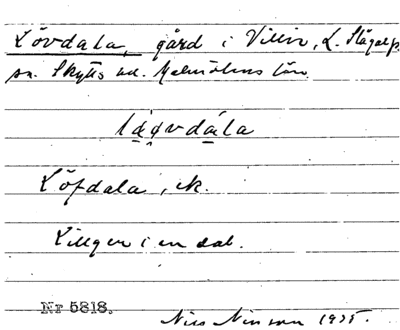 Lövdala, gård i Villie, L. Slågarp
sn. Skytts hd. Malmöhus län
Löfdala, ek.
Ligger i en dal.
Nr 5818.
Nils Nilsson 1935.